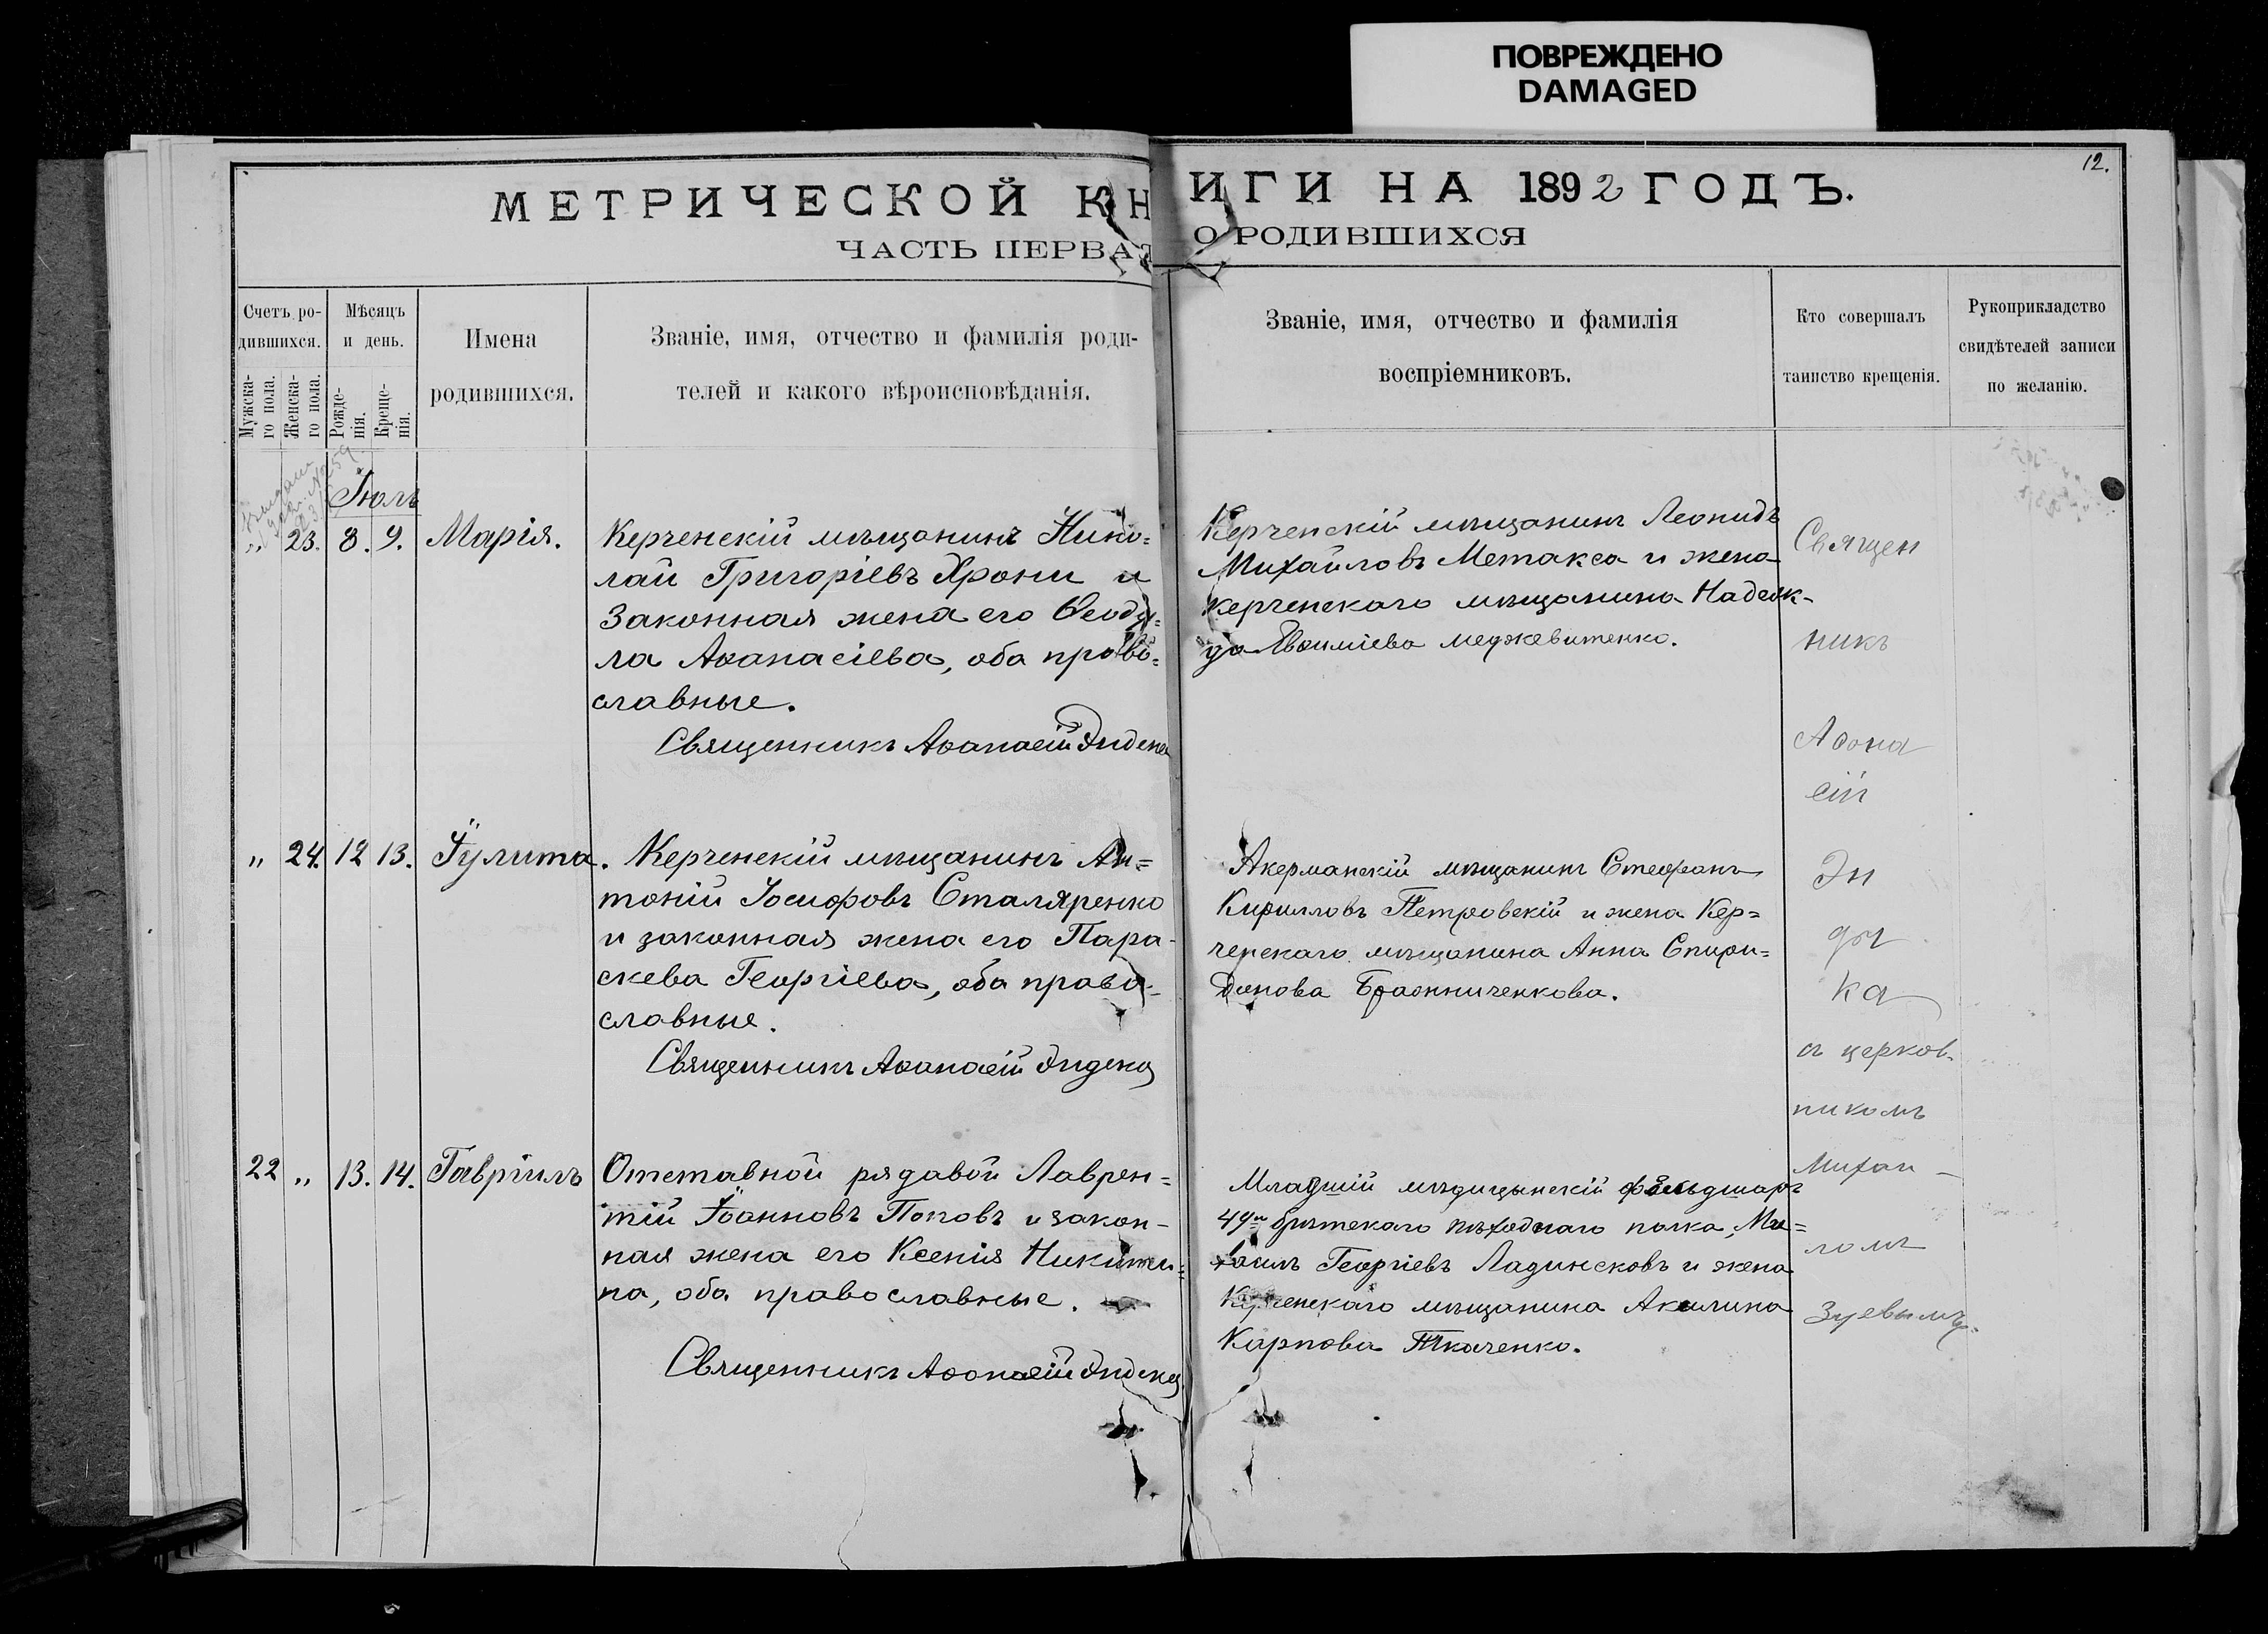 ПОВРЕЖДЕНО
DAMAGED
12.
МЕТРИЧЕСКОЙ КНИГИ НА 1892 ГОДЪ.
ЧАСТЬ ПЕРВАЯ О РОДИВШИХСЯ
Счетъ ро-
дившихся.
Мужска-
го пола.
Женска-
го пола.
Мѣсяцъ
и день.
Рожде-
нія.
Креще-
нія.
Имена
родившихся.
Званіе, имя, отчество и фамилія роди-
телей и какого вѣроисповѣданія.
Званіе, имя, отчество и фамилія
воспріемниковъ.
Кто совершалъ
таинство крещенія.
Рукоприкладство
свидѣтелей записи
по желанію.
Іюль
„ 23. 8. 9. Марія.
Керченскій мѣщанинъ Нико=
лай Григоріевъ Хрони и
законная жена его Ѳеоду=
ла Аѳанасіева, оба право=
славные.
Священникъ Аѳанасій Эндека
Керченскій мѣщанинъ Леонидъ
Михайловъ Метакса и жена
керченскаго мѣщанина Надеж-
да Евѳиміева
„ 24. 12 13. Іулита.
Керченскій мѣщанинъ Ан=
тоній Іосифовъ Сталяренко
и законная жена его Пара-
скева Георгіева, оба право-
славные.
Священникъ Аѳанасій Эндека
Акерманскій мѣщанинъ Стефанъ
Кирилловъ Петровскій и жена Кер=
ченскаго мѣщанина Анна Спири=
донова
22 „ 13. 14. Гавріилъ
Отставной рядавой Лаврен=
тій Іоанновъ Поповъ и закон-
ная жена его Ксенія Никити=
на, оба православные.
Священникъ Аѳанасій Эндека
Младшій мѣдицынскій фельдшаръ
49го полка, Ми=
Георгіевъ Ладинсковъ и жена
Керченскаго мѣщанина Акилина
Карпова Ткаченко.
Священ
никъ
Аѳана
сій
Эн
де
ка
съ церков-
никомъ
Михаи-
ломъ
Зуевымъ.